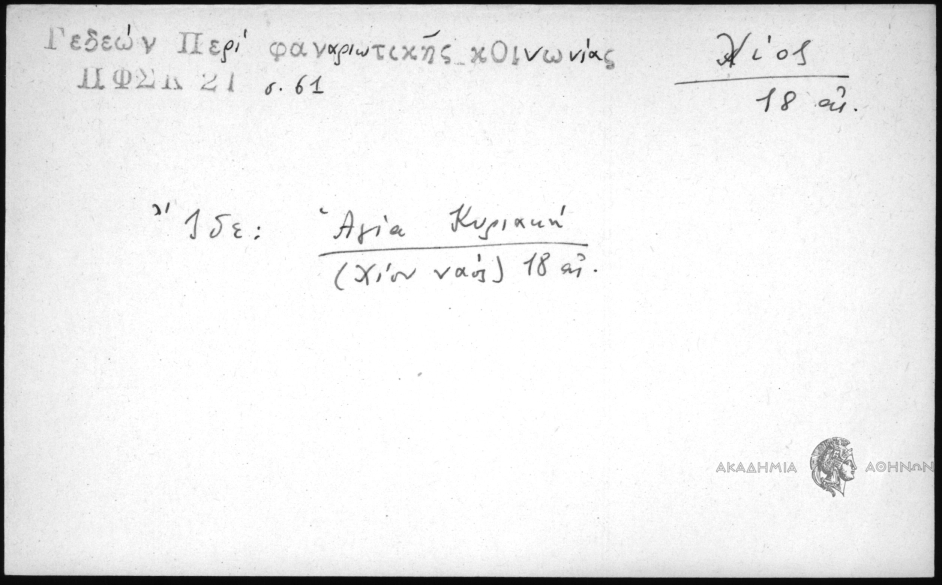 Γεδεών Περί φαναριωτικῆς κΟινωνίας
ΠΦΣΚ 21 σ. 61
Χίος
18 αἰ.
Ἴδε: Ἁγία Κυριακή
(Χίου ναός) 18 αἰ.
ΑΚΑΔΗΜΙΑ ΑΘΗΝΩΝ